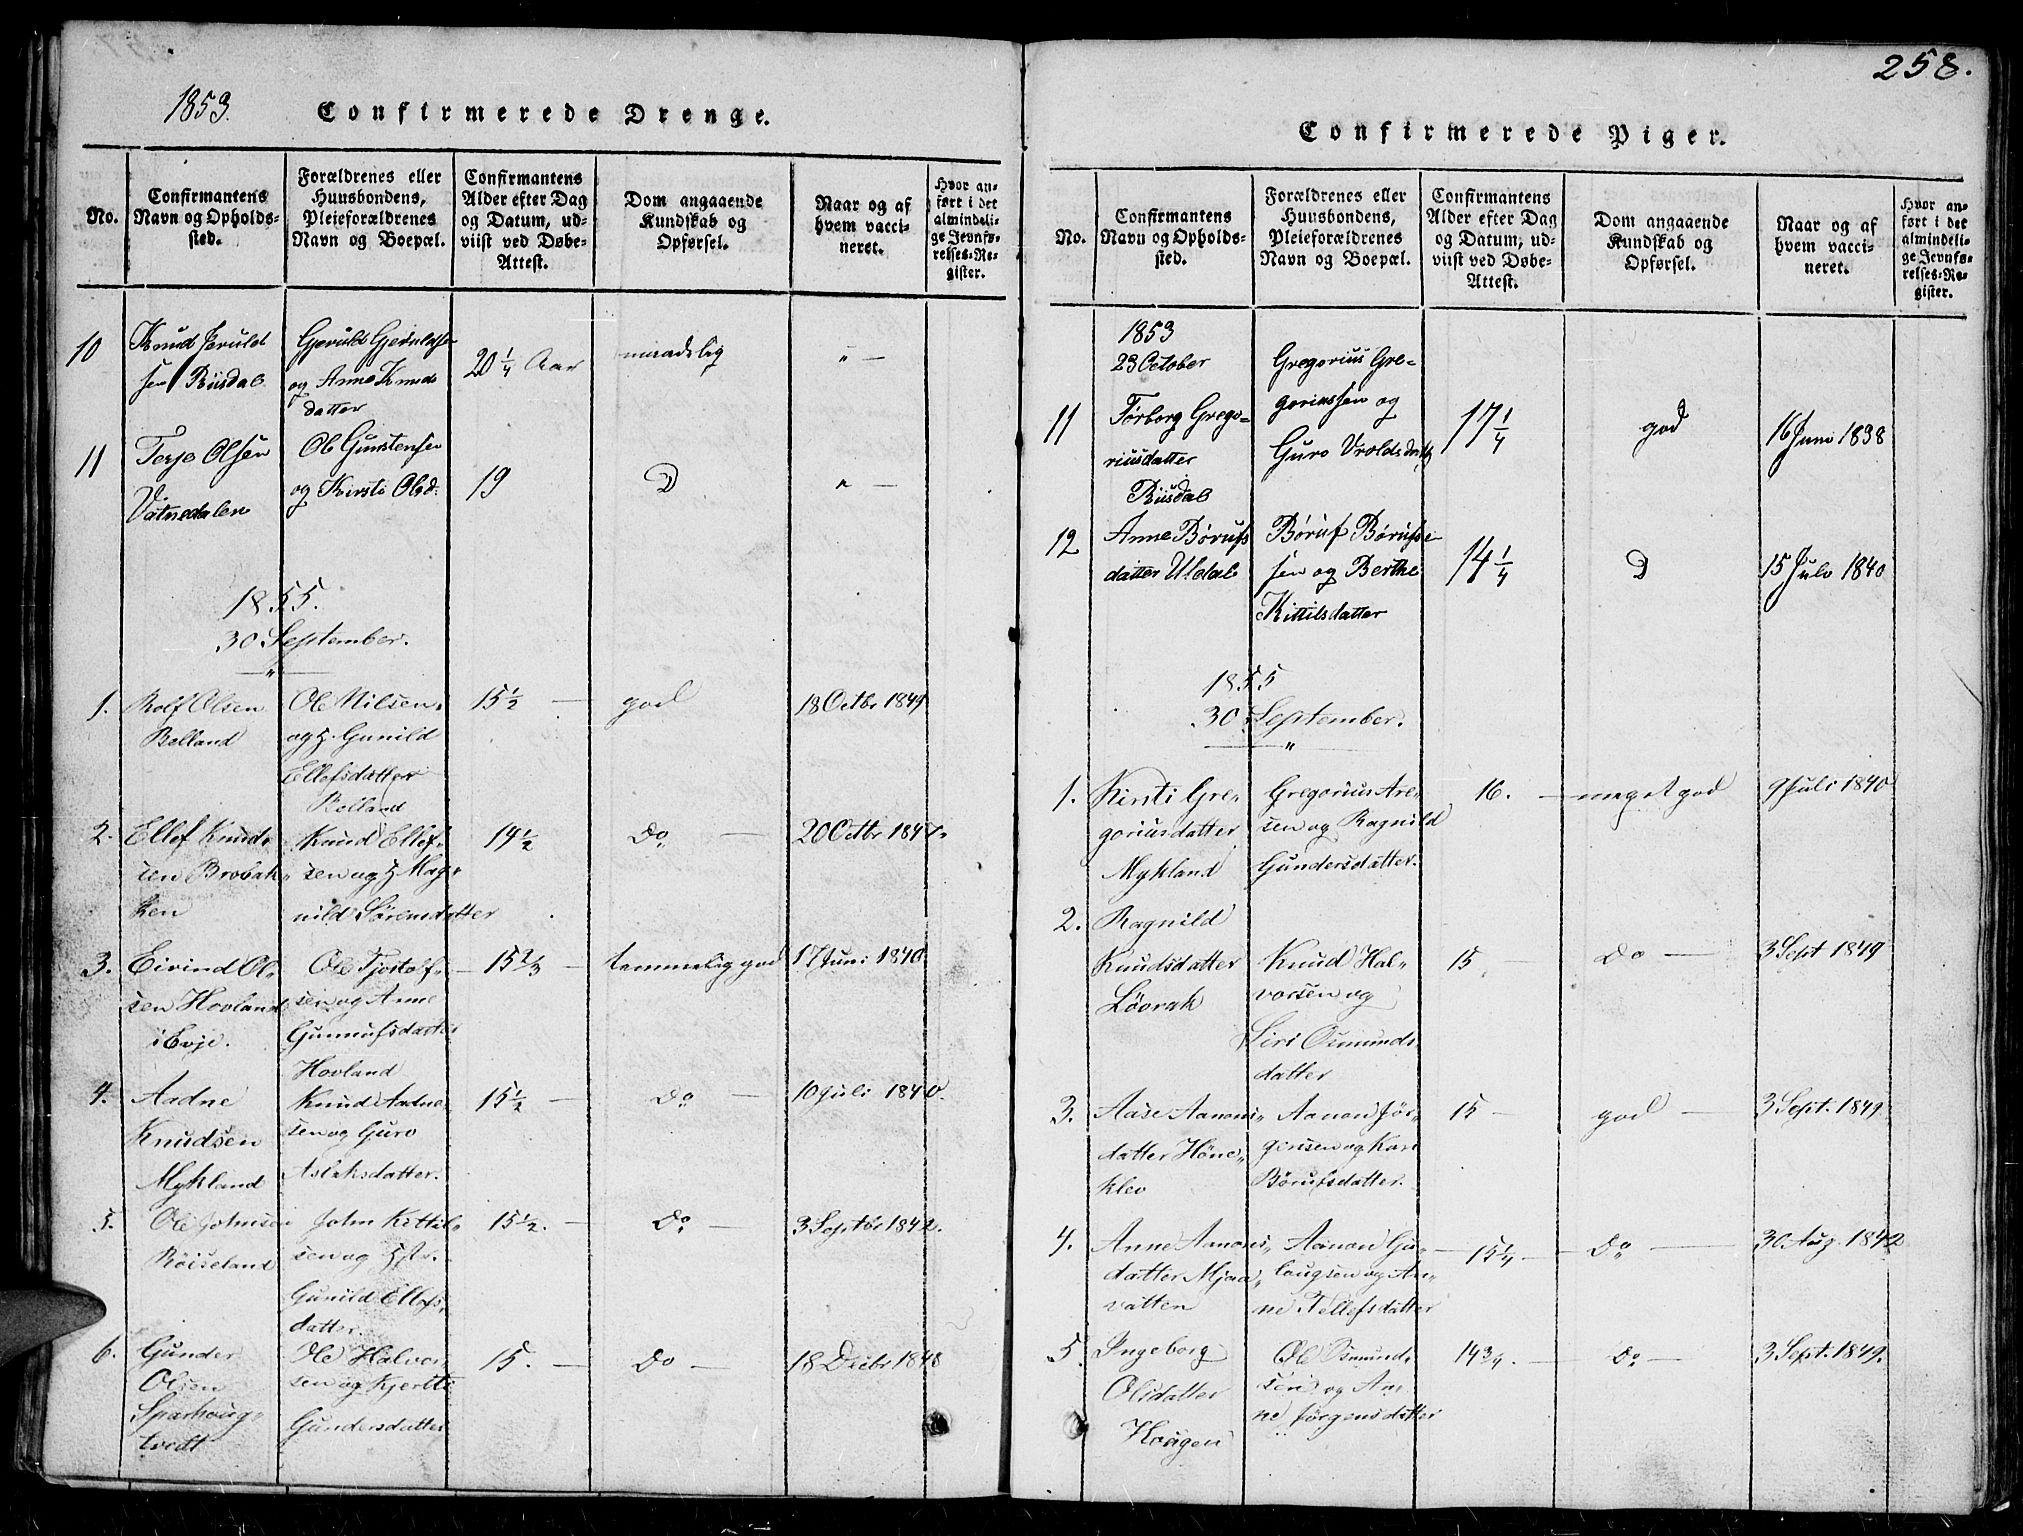 1853.
Confirmerede Drenge.
No.
Confirmantens
Navn og Opholds-
sted.
Forældrenes eller
Huusbondens,
Pleieforældrenes
Navn og Boepæl.
Confirmantens
Alder efter Dag
og Datum, ud-
viist ved Døbe-
Attest.
Dom angaaende
Kundskab og
Opførsel.
Naar og af
hvem vacci-
neret.
Hvor an-
ført i det
almindeli-
ge Jevnfø-
relses-Re-
gister.
10
Knud Jeruld
sen Riisdal
Gjeruld Gjeruldsen
og Anne Knuds
datter
20 1/4 Aar
maadelig
" —
11
Terje Olsen
Vatnedalen
Ole Gunstensen
og Kirsti Olsd:
19
D
" —
1855.
30 September.
"
1.
Rolf Olsen
Belland
Ole Nilsen
og H. Gunild
Ellefsdatter
Belland
15 1/2 —
god
18 Octbr 1849
2.
Ellef Knud-
sen Brobak-
ken
Knud Ellef-
sen og H Mag-
nild Sörensdatter
14 1/2
Do —
20 Octbr 1847.
3.
Eivind Ol-
sen Hovland
i Evje.
Ole Tjostolf-
sen og Anne
Gunnufsdatter
Hovland
15 2/3 —
temmelig god
17 Juni 1840
4.
Aadne
Knudsen
Mykland
Knud Aadne-
sen og Guro
Aslaksdatter.
15 1/2 —
Do —
10 Juli 1840.
5.
Ole Johnsen
Röiseland
John Kittil-
sen og Hstr.
Gunild Ellefs-
datter.
15 1/2. —
Do —
3 Septbr 1842.
6.
Gunder
Olsen
Sparhoug-
tvedt
Ole Halvor-
sen og Kjersti
Gundersdatter
15. —
Do —
18 Decbr 1848
258.
Confirmerede Piger.
No.
Confirmantens
Navn og Opholds-
sted.
Forældrenes eller
Huusbondens,
Pleieforældrenes
Navn og Boepæl.
Confirmantens
Alder efter Dag
og Datum, ud-
viist ved Døbe-
Attest.
Dom angaaende
Kundskab og
Opførsel.
Naar og af
hvem vacci-
neret.
Hvor an-
ført i det
almindeli-
ge Jevnfø-
relses-Re-
gister.
1853
23 October
11
Torborg Grego-
riusdatter
Riisdal
Gregorius Gre-
goriussen og
Guro Vroldsdatter
17 1/4
god
16 Juni 1838
12
Anne Børufs
datter Uldal
Børuf Børufs
sen og Berthe
Kittilsdatter
14 1/4
D
15 Julv 1840
1855
30 September.
"
1.
Kirsti Gre-
goriusdatter
Mykland
Gregorius Are-
sen og Ragnild
Gundersdatter.
16. —
meget god
9 Juli 1840
2.
Ragnild
Knudsdatter
Lövrak
Knud Hal-
vorsen og
Siri Osmunds-
datter
15 —
Do —
3 Sept 1849
3.
Aase Aanons-
datter Höne-
klev
Aanon Jör-
gensen og Kari
Börufsdatter.
15 —
god —
3 Sept. 1849
4.
Anne Aanons-
datter Mjaa-
vatten
Aanon Gu-
laugsen og An-
ne Tellefsdatter
— 15 1/4 —
Do —
30 Aug. 1842
5.
Ingeborg
Olsdatter
Haagen
Ole Osmund-
sen og An-
ne Jörgensdatter
14 3/4. —
Do —
3 Sept. 1849.